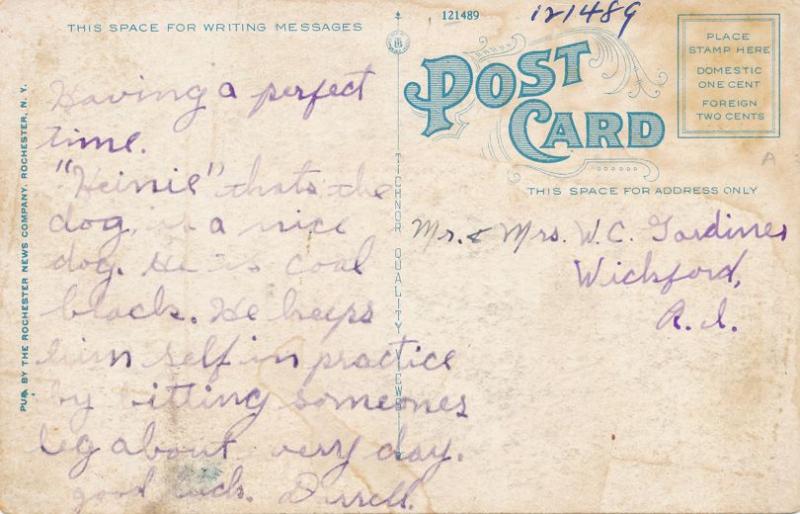 THIS SPACE FOR WRITING MESSAGES
121489
121489
POST
CARD
PLACE
STAMP HERE
DOMESTIC
ONE CENT
FOREIGN
TWO CENTS
THIS SPACE FOR ADDRESS ONLY
PUB. BY THE ROCHESTER NEWS COMPANY, ROCHESTER, N. Y.
TICHNOR QUALITY VIEWS
Having a perfect
time.
"Heinie" thats the
dog, is a nice
dog. He is coal
black. He keeps
him self in practice
by bitting someones
leg about very day.
good luck. Durrell.
Mr. & Mrs. W. C. Gardiner
Wickford,
R. I.